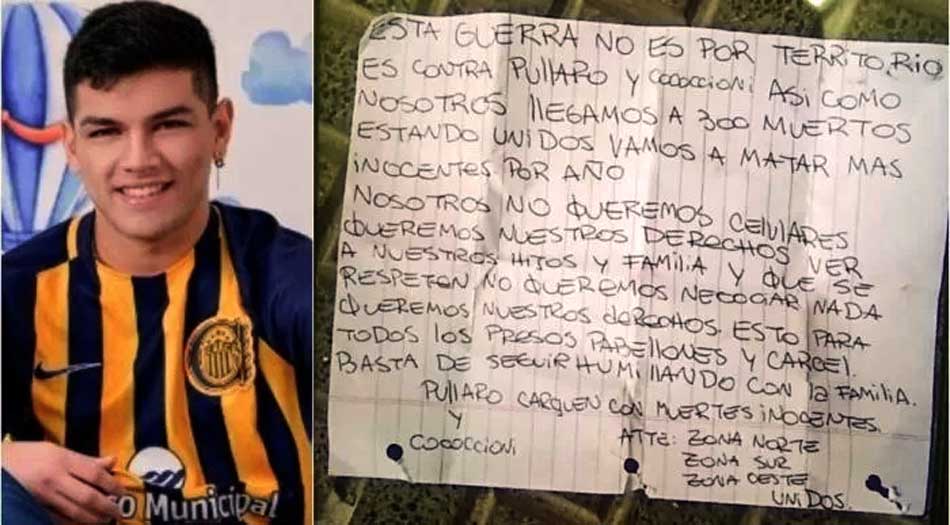 o Municipal
ESTA GUERRA NO ES POR TERRITORIO
ES CONTRA PULLARO Y COCOCCIONI ASI COMO
NOSOTROS LLEGAMOS A 300 MUERTOS
ESTANDO UNIDOS VAMOS A MATAR MAS
INOCENTES POR AÑO
NOSOTROS NO QUEREMOS CELULARES
QUEREMOS NUESTROS DERECHOS VER
A NUESTROS HIJOS Y FAMILIA Y QUE SE
RESPETEN NO QUEREMOS NEGOCIAR NADA
QUEREMOS NUESTROS DERECHOS. ESTO PARA
TODOS LOS PRESOS PABELLONES Y CARCEL.
BASTA DE SEGUIR HUMILLANDO CON LA FAMILIA.
PULLARO CARGUEN CON MUERTES INOCENTES.
Y
COCOCCIONI
ATTE: ZONA NORTE
ZONA SUR
ZONA OESTE
UNIDOS.